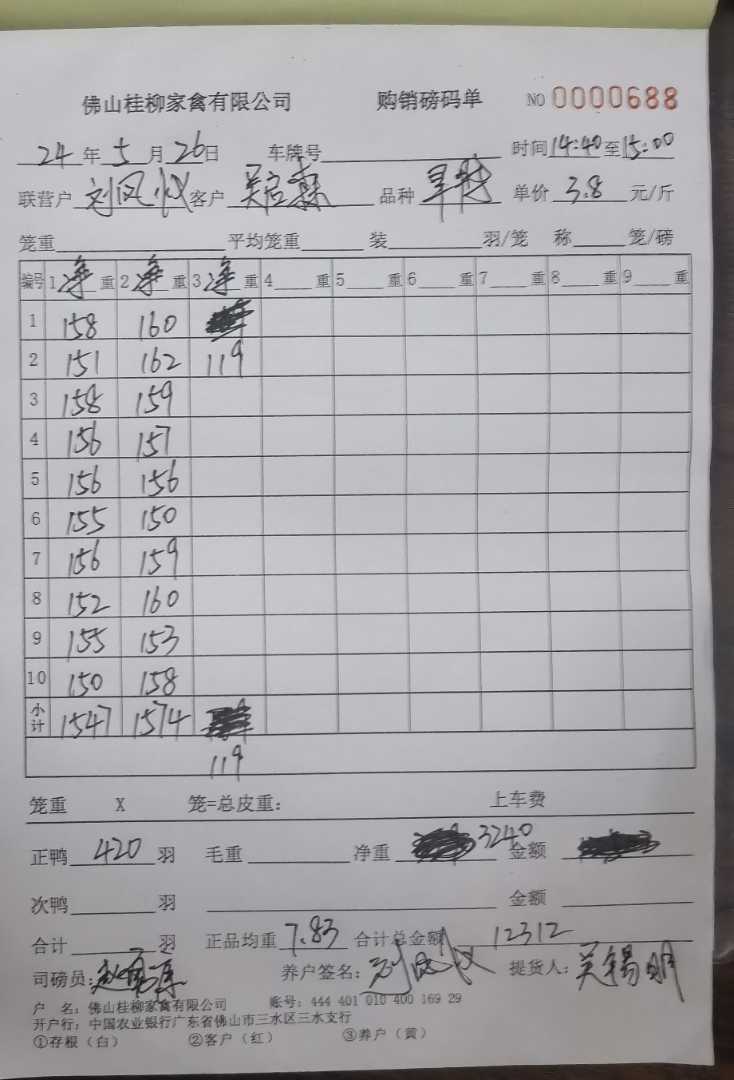 佛山桂柳家禽有限公司 购销磅码单 NO 0000688
24年5月26日 车牌号 时间14:40至15:00
联营户 刘凤仪 客户 吴启森 品种 单价 3.8 元/斤
笼重 平均笼重 装 羽/笼 称 笼/磅
编号 1净重 2净重 3净重 4 重 5 重 6 重 7 重 8 重 9 重
1 158 160
2 151 162 119
3 158 159
4 156 157
5 156 156
6 155 150
7 156 159
8 152 160
9 155 153
10 150 158
小计 1547 1574
119
笼重 X 笼=总皮重: 上车费
正鸭 420 羽 毛重 净重 3240 金额
次鸭 羽 金额
合计 羽 正品均重 7.83 合计总金额 12312
司磅员: 养户签名: 提货人: 吴锡明
户 名: 佛山桂柳家禽有限公司 账号: 444 401 010 400 169 29
开户行: 中国农业银行广东省佛山市三水区三水支行
①存根(白) ②客户(红) ③养户(黄)